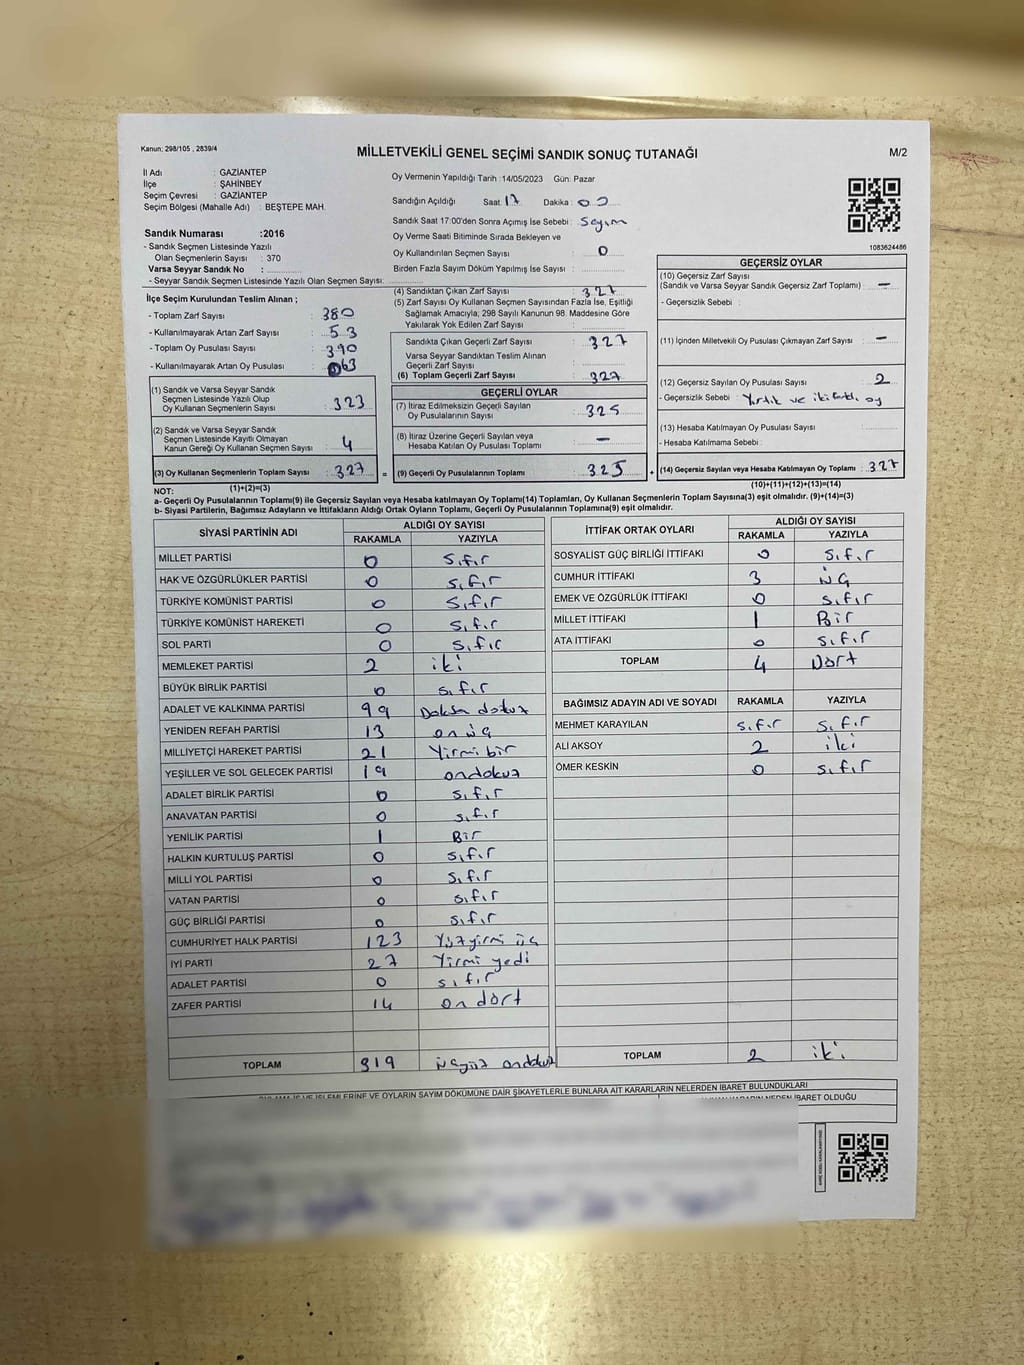 Kanun: 298/105 , 2839/4
MİLLETVEKİLİ GENEL SEÇİMİ SANDIK SONUÇ TUTANAĞI
M/2
İl Adı : GAZİANTEP
İlçe : ŞAHİNBEY
Seçim Çevresi : GAZİANTEP
Seçim Bölgesi (Mahalle Adı) : BEŞTEPE MAH.
Oy Vermenin Yapıldığı Tarih :14/05/2023 Gün: Pazar
Sandığın Açıldığı Saat 17 Dakika : 00
Sandık Saat 17:00'den Sonra Açımış İse Sebebi : Seçim
Oy Verme Saati Bitiminde Sırada Bekleyen ve
Oy Kullandırılan Seçmen Sayısı : 0
Birden Fazla Sayım Döküm Yapılmış İse Sayısı :
Sandık Numarası :2016
- Sandık Seçmen Listesinde Yazılı
Olan Seçmenlerin Sayısı : 370
Varsa Seyyar Sandık No :
- Seyyar Sandık Seçmen Listesinde Yazılı Olan Seçmen Sayısı:
1083624486
İlçe Seçim Kurulundan Teslim Alınan ;
- Toplam Zarf Sayısı : 380
- Kullanılmayarak Artan Zarf Sayısı : 53
- Toplam Oy Pusulası Sayısı : 390
- Kullanılmayarak Artan Oy Pusulası : 63
(1) Sandık ve Varsa Seyyar Sandık
Seçmen Listesinde Yazılı Olup
Oy Kullanan Seçmenlerin Sayısı : 323
(2) Sandık ve Varsa Seyyar Sandık
Seçmen Listesinde Kayıtlı Olmayan
Kanun Gereği Oy Kullanan Seçmen Sayısı : 4
(3) Oy Kullanan Seçmenlerin Toplam Sayısı : 327 =
(1)+(2)=(3)
(4) Sandıktan Çıkan Zarf Sayısı : 327
(5) Zarf Sayısı Oy Kullanan Seçmen Sayısından Fazla İse, Eşitliği
Sağlamak Amacıyla; 298 Sayılı Kanunun 98. Maddesine Göre
Yakılarak Yok Edilen Zarf Sayısı :
Sandıkta Çıkan Geçerli Zarf Sayısı : 327
Varsa Seyyar Sandıktan Teslim Alınan
Geçerli Zarf Sayısı :
(6) Toplam Geçerli Zarf Sayısı : 327
GEÇERLİ OYLAR
(7) İtiraz Edilmeksizin Geçerli Sayılan
Oy Pusulalarının Sayısı : 325
(8) İtiraz Üzerine Geçerli Sayılan veya
Hesaba Katılan Oy Pusulası Toplamı : —
(9) Geçerli Oy Pusulalarının Toplamı : 325 +
GEÇERSİZ OYLAR
(10) Geçersiz Zarf Sayısı
(Sandık ve Varsa Seyyar Sandık Geçersiz Zarf Toplamı) : —
- Geçersizlik Sebebi :
(11) İçinden Milletvekili Oy Pusulası Çıkmayan Zarf Sayısı : —
(12) Geçersiz Sayılan Oy Pusulası Sayısı : 2
- Geçersizlik Sebebi : Yırtık ve iki farklı oy
(13) Hesaba Katılmayan Oy Pusulası Sayısı :
- Hesaba Katılmama Sebebi :
(14) Geçersiz Sayılan veya Hesaba Katılmayan Oy Toplamı : 327
(10)+(11)+(12)+(13)=(14)
NOT:
a- Geçerli Oy Pusulalarının Toplamı(9) ile Geçersiz Sayılan veya Hesaba katılmayan Oy Toplamı(14) Toplamları, Oy Kullanan Seçmenlerin Toplam Sayısına(3) eşit olmalıdır. (9)+(14)=(3)
b- Siyasi Partilerin, Bağımsız Adayların ve İttifakların Aldığı Ortak Oyların Toplamı, Geçerli Oy Pusulalarının Toplamına(9) eşit olmalıdır.
SİYASİ PARTİNİN ADI ALDIĞI OY SAYISI
RAKAMLA YAZIYLA
MİLLET PARTİSİ 0 sıfır
HAK VE ÖZGÜRLÜKLER PARTİSİ 0 sıfır
TÜRKİYE KOMÜNİST PARTİSİ 0 sıfır
TÜRKİYE KOMÜNİST HAREKETİ 0 sıfır
SOL PARTİ 0 sıfır
MEMLEKET PARTİSİ 2 iki
BÜYÜK BİRLİK PARTİSİ 0 sıfır
ADALET VE KALKINMA PARTİSİ 99 Doksan dokuz
YENİDEN REFAH PARTİSİ 13 on üç
MİLLİYETÇİ HAREKET PARTİSİ 21 Yirmi bir
YEŞİLLER VE SOL GELECEK PARTİSİ 19 ondokuz
ADALET BİRLİK PARTİSİ 0 sıfır
ANAVATAN PARTİSİ 0 sıfır
YENİLİK PARTİSİ 1 Bir
HALKIN KURTULUŞ PARTİSİ 0 sıfır
MİLLİ YOL PARTİSİ 0 sıfır
VATAN PARTİSİ 0 sıfır
GÜÇ BİRLİĞİ PARTİSİ 0 sıfır
CUMHURİYET HALK PARTİSİ 123 Yüzyirmi üç
İYİ PARTİ 27 Yirmi yedi
ADALET PARTİSİ 0 sıfır
ZAFER PARTİSİ 14 on dört
TOPLAM 319 üçyüz ondokuz
İTTİFAK ORTAK OYLARI ALDIĞI OY SAYISI
RAKAMLA YAZIYLA
SOSYALİST GÜÇ BİRLİĞİ İTTİFAKI 0 sıfır
CUMHUR İTTİFAKI 3 üç
EMEK VE ÖZGÜRLÜK İTTİFAKI 0 sıfır
MİLLET İTTİFAKI 1 Bir
ATA İTTİFAKI 0 sıfır
TOPLAM 4 Dört
BAĞIMSIZ ADAYIN ADI VE SOYADI RAKAMLA YAZIYLA
MEHMET KARAYILAN sıfır sıfır
ALİ AKSOY 2 iki
ÖMER KESKİN 0 sıfır
TOPLAM 2 iki
İŞLEMLERİNE VE OYLARIN SAYIM DÖKÜMÜNE DAİR ŞİKAYETLERLE BUNLARA AİT KARARLARIN NELERDEN İBARET BULUNDUKLARI
NEDEN İBARET OLDUĞU